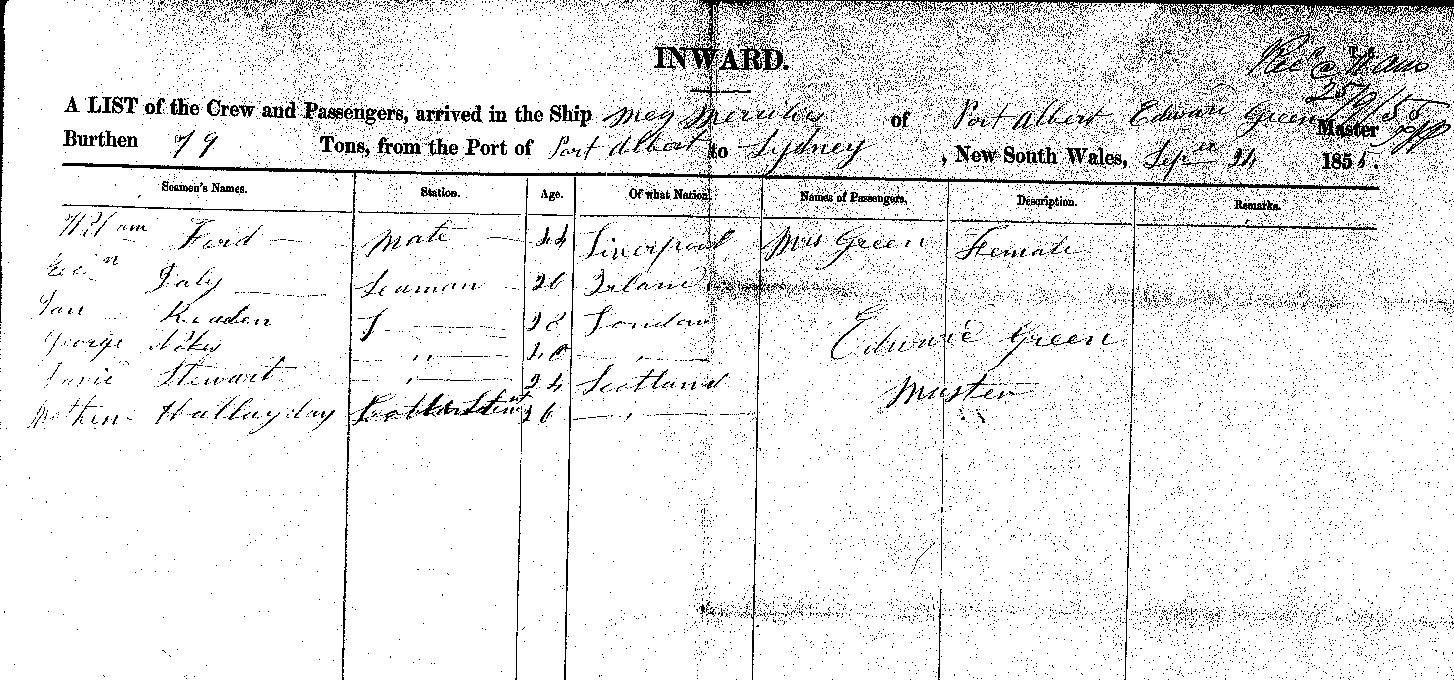 INWARD.
25/9/55
A LIST of the Crew and Passengers, arrived in the Ship Meg Merrilies of Port Albert Edward Green Master
Burthen 79 Tons, from the Port of Port Albert to Sydney , New South Wales, Sepr 24 1855.
Seamen's Names. Station. Age. Of what Nation. Names of Passengers. Description. Remarks.
William Ford Mate 44 Liverpool Mrs Green Female
Daly Seaman 26 Ireland
28 London
George Nokes " 40 "
Stewart " 24 Scotland
Hallayday 26 "
Edward Green
Master